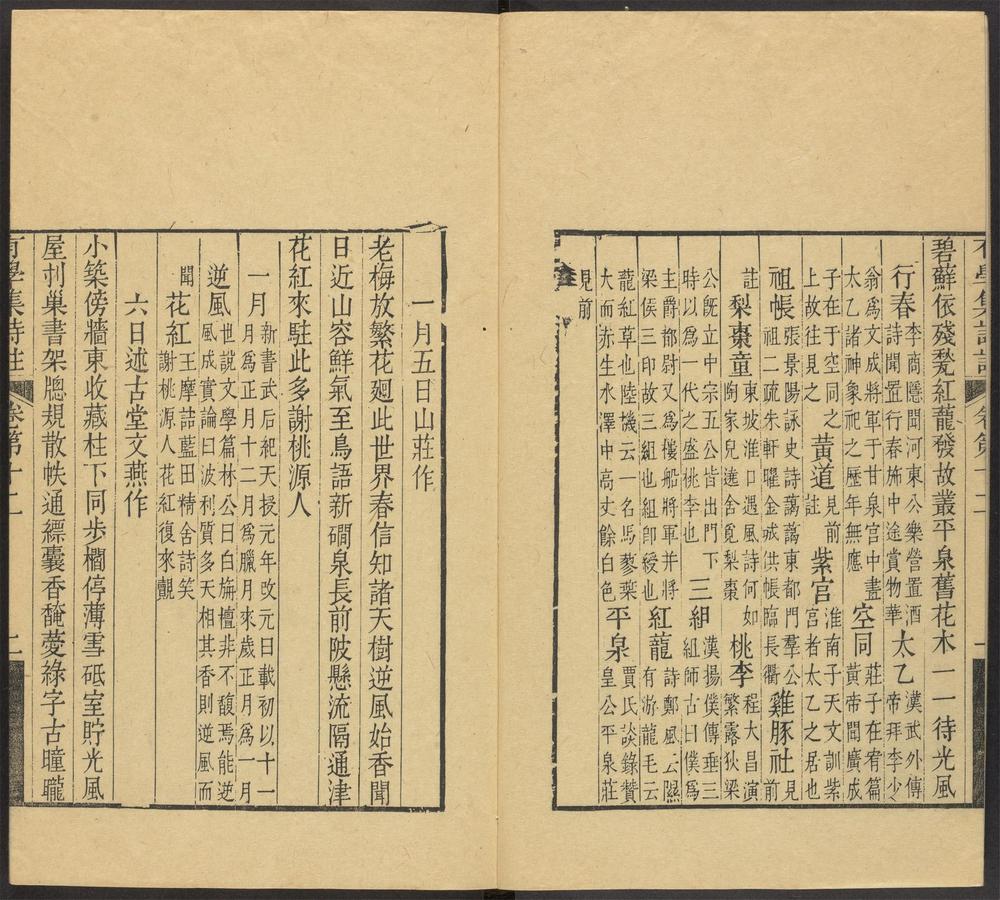 有學集詩註 卷第十二 一
碧蘚依殘甃紅蘢發故叢平泉舊花木一一待光風
行春 李商隱聞河東公樂營置酒詩聞置行春斾中途賞物華 太乙 漢武外傳帝拜李少
翁爲文成將軍于甘泉宮中畫太乙諸神象祀之歷年無應 空同 莊子在宥篇黃帝聞廣成
子在于空同之上故往見之 黃道 見前註 紫宮 淮南子天文訓紫宮者太乙之居也
祖帳 張景陽詠史詩藹藹東都門羣公祖二疏朱軒曜金城供帳臨長衢 雞豚社 見前
註 梨棗童 東坡淮口遇風詩何如陶家兒遶舍覓梨棗 桃李 程大昌演繁露狄梁
公旣立中宗五公皆出門下時以爲一代之盛桃李也 三組 漢揚僕傳垂三組師古曰僕爲
主爵都尉又爲樓船將軍并將梁侯三印故三組也組卽綬也 紅龍 詩鄭風云隰有游龍毛云
龍紅草也陸機云一名馬蓼葉大而赤生水澤中高丈餘白色 平泉 賈氏談錄贊皇公平泉莊
見前
一月五日山莊作
老梅放繁花廻此世界春信知諸天樹逆風始香聞
日近山容鮮氣至鳥語新磵泉長前陂懸流隔通津
花紅來駐此多謝桃源人
一月 新書武后紀天授元年改元曰載初以十一月爲正月十二月爲臘月來歲正月爲一月
逆風 世說文學篇林公曰白旃檀非不馥焉能逆風成實論曰波利質多天相其香則逆風而
聞 花紅 王摩詰藍田精舍詩笑謝桃源人花紅復來覿
六日述古堂文燕作
小築傍牆東收藏柱下同步櫩停薄雪砥室貯光風
屋刌巢書架牎規散帙通縹囊香馣薆綠字古曈曨
有學集詩註 卷第十二 二